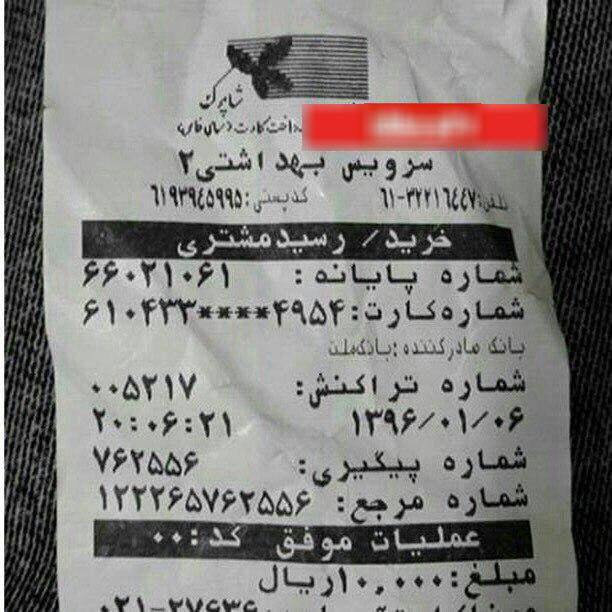 شاپرک
سرویس بهداشتی ۲
تلفن: ۳۲۲۱۶۴۴۷-۶۱ کدپستی: ۶۱۹۳۹۴۵۹۹۵
خرید / رسید مشتری
شماره پایانه: ۶۶۰۲۱۰۶۱
شماره کارت: ۶۱۰۴۳۳****۴۹۵۴
بانک صادرکننده: بانک ملت
شماره تراکنش: ۰۰۵۲۱۷
۱۳۹۶/۰۱/۰۶ ۲۰:۰۶:۲۱
شماره پیگیری: ۷۶۲۵۵۶
شماره مرجع: ۱۲۲۲۶۵۷۶۲۵۵۶
عملیات موفق کد: ۰۰
مبلغ: ۱۰,۰۰۰ ریال
۰۲۱-۲۷۶۳۶